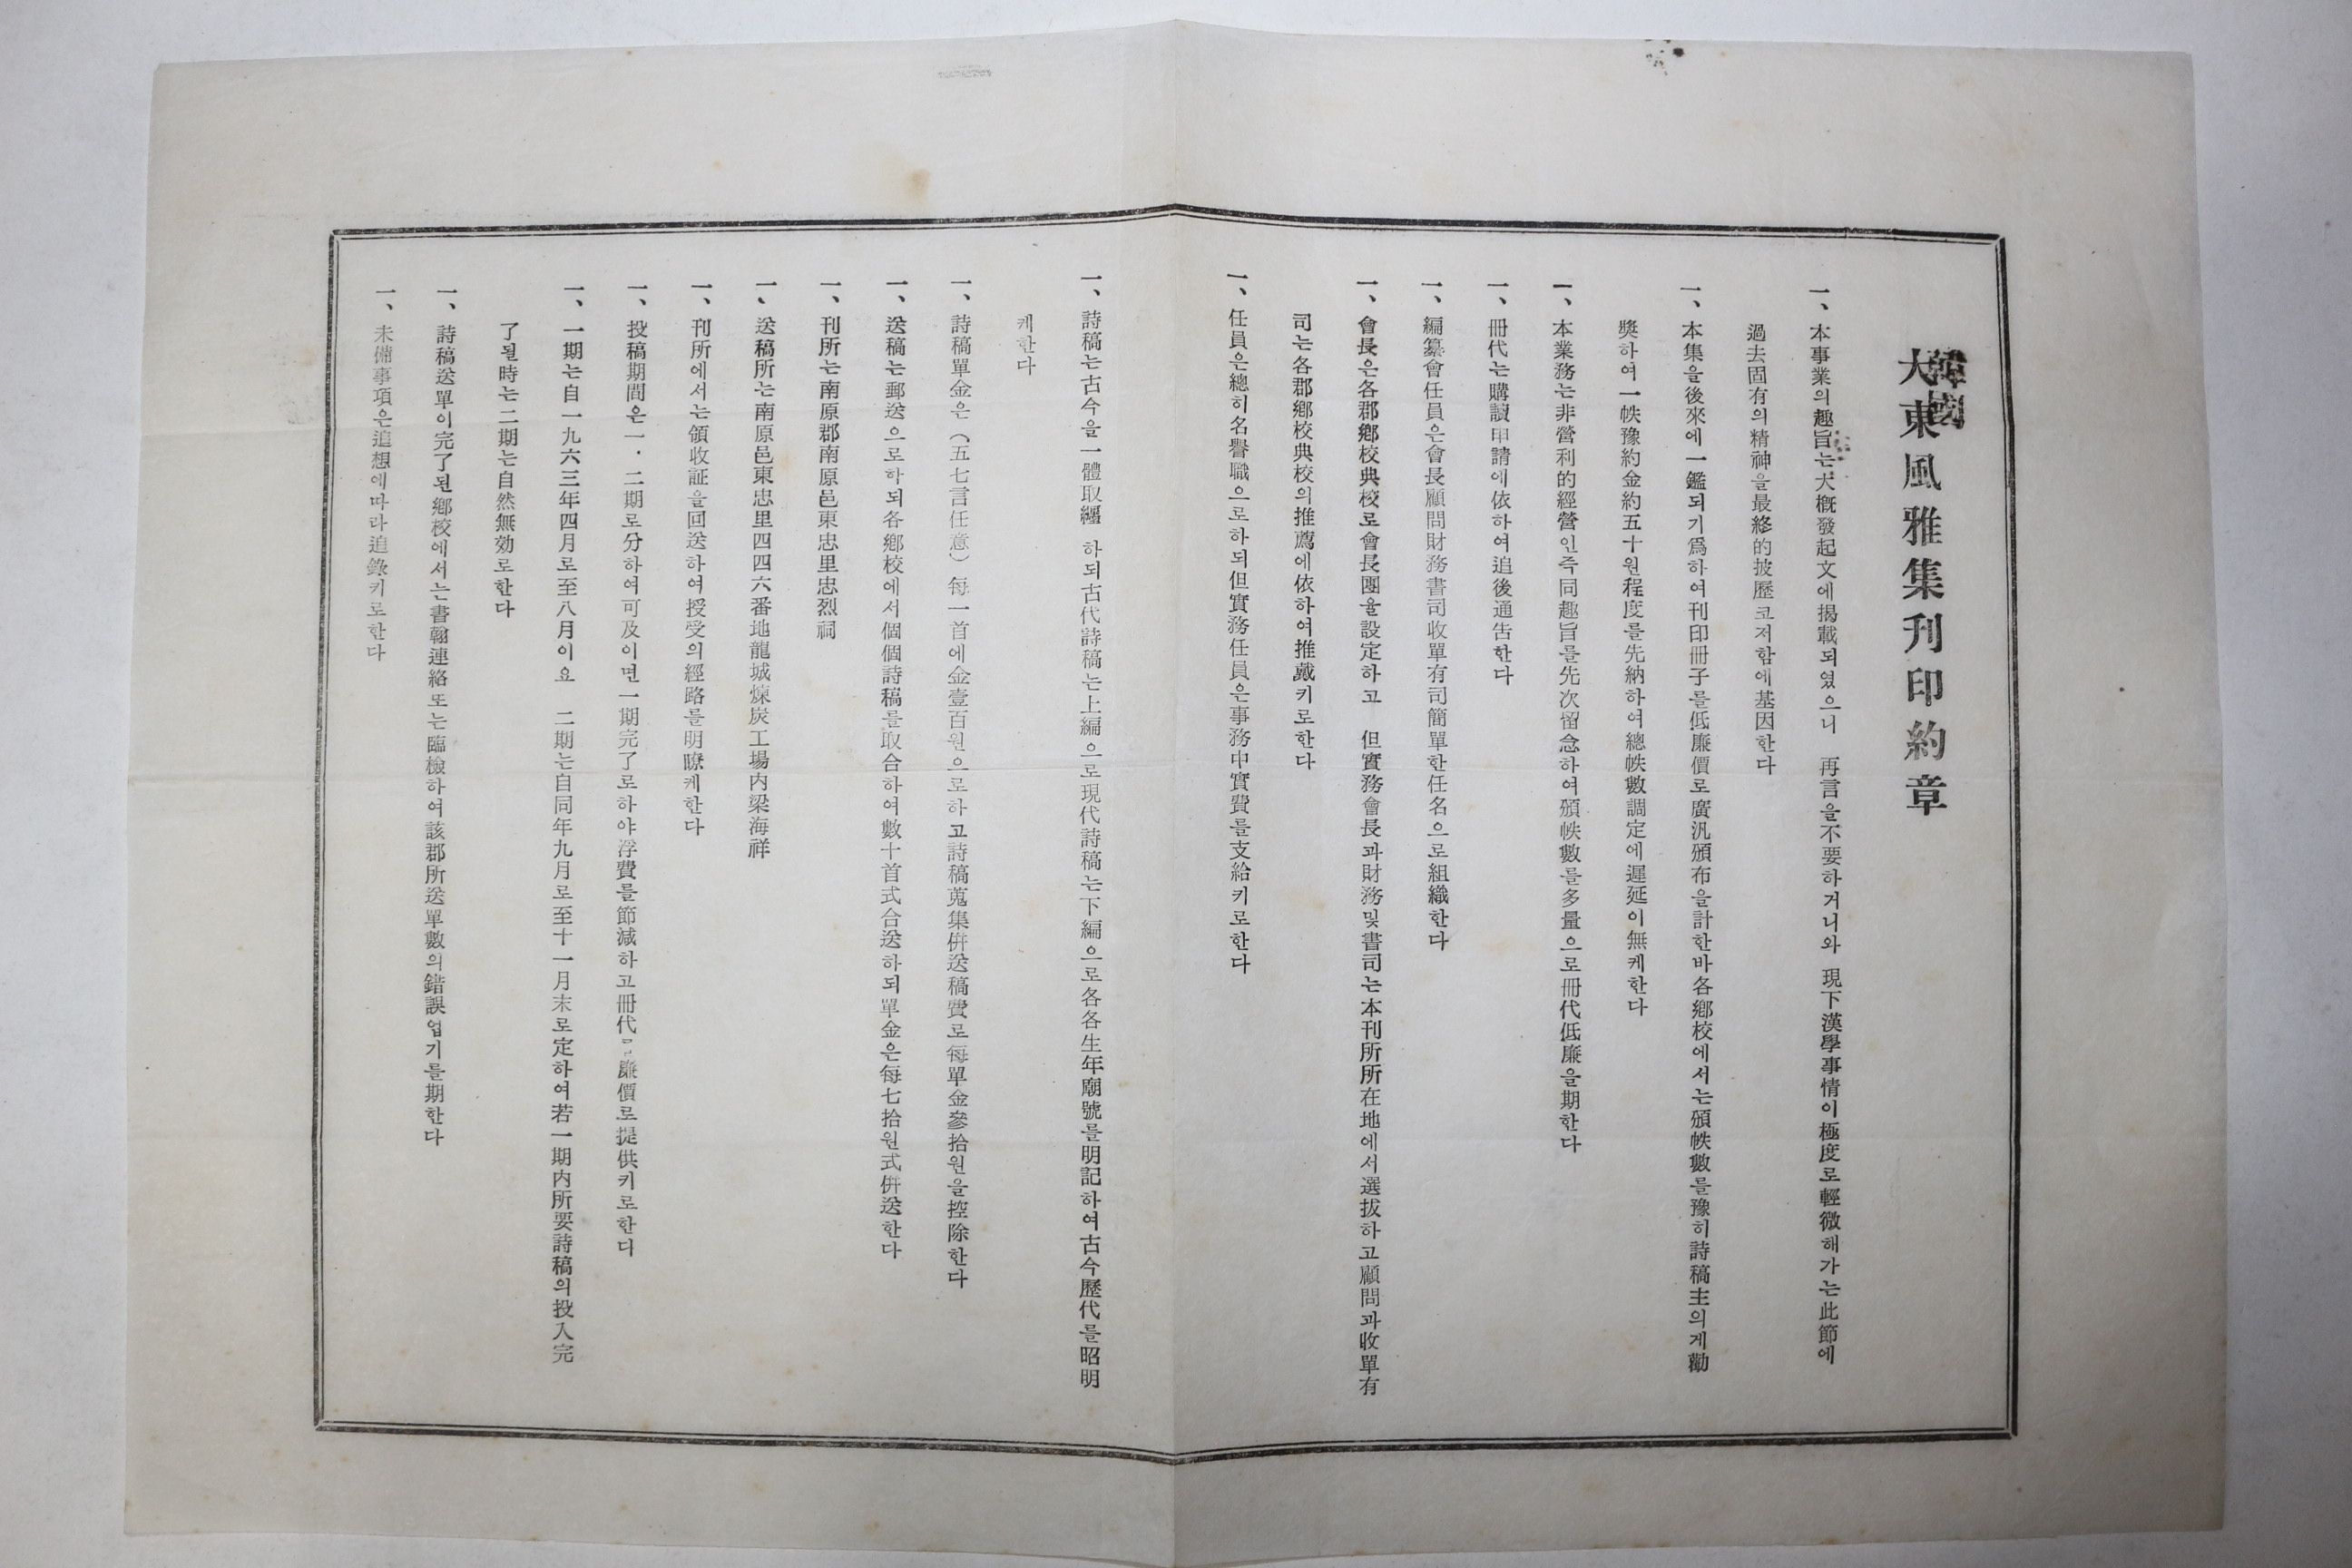 韓國
大東風雅集刊印約章
一、本事業의趣旨는大槪發起文에揭載되였으니 再言을不要하거니와 現下漢學事情이極度로輕微해가는此節에
過去固有의精神을最終的披歷코저함에基因한다
一、本集을後來에一鑑되기爲하여刊印冊子를低廉價로廣汎頒布을計한바各鄕校에서는頒帙數를豫히詩稿主의게勸
獎하여一帙豫約金約五十원程度를先納하여總帙數調定에遲延이無케한다
一、本業務는非營利的經營인즉同趣旨를先次留念하여頒帙數를多量으로冊代低廉을期한다
一、冊代는購讀申請에依하여追後通告한다
一、編纂會任員은會長顧問財務書司收單有司簡單한任名으로組織한다
一、會長은各郡鄕校典校로會長團을設定하고 但實務會長과財務및書司는本刊所所在地에서選拔하고顧問과收單有
司는各郡鄕校典校의推薦에依하여推戴키로한다
一、任員은總히名譽職으로하되但實務任員은事務中實費를支給키로한다
一、詩稿는古今을一體取繼 하되古代詩稿는上編으로現代詩稿는下編으로各各生年廟號를明記하여古今歷代를昭明
케한다
一、詩稿單金은（五七言任意）每一首에金壹百원으로하고詩稿蒐集倂送稿費로每單金參拾원을控除한다
一、送稿는郵送으로하되各鄕校에서個個詩稿를取合하여數十首式合送하되單金은每七拾원式倂送한다
一、刊所는南原郡南原邑東忠里忠烈祠
一、送稿所는南原邑東忠里四四六番地龍城煉炭工場內梁海祥
一、刊所에서는領收証을回送하여授受의經路를明瞭케한다
一、投稿期間은一．二期로分하여可及이면一期完了로하야浮費를節減하고冊代 廉價로提供키로한다
一、一期는自一九六三年四月로至八月이요 二期는自同年九月로至十一月末로定하여若一期內所要詩稿의投入完
了될時는二期는自然無効로한다
一、詩稿送單이完了된鄕校에서는書翰連絡또는臨檢하여該郡所送單數의錯誤업기를期한다
一、未備事項은追想에따라追錄키로한다